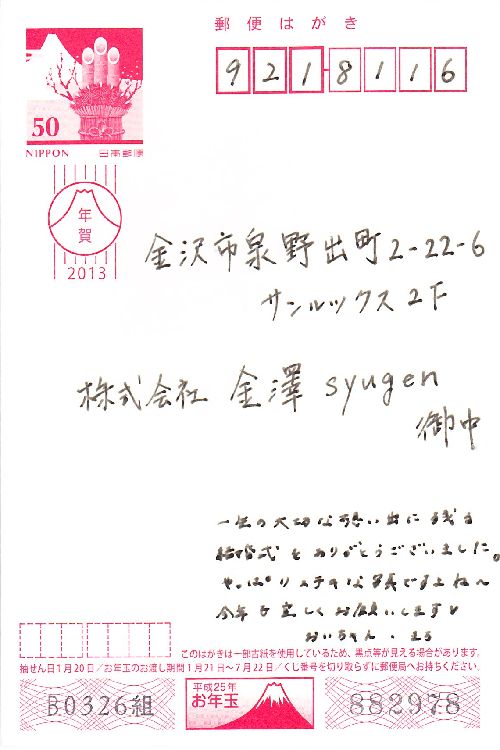 郵便はがき
921-8116
50
NIPPON 日本郵便
年賀
2013
金沢市泉野出町2-22-6
サンルックス2F
株式会社 金澤 syugen
御中
一生の大切な思い出に残る
結婚式をありがとうございました。
やっぱりステキな写真ですよね〜
今年も宜しくお願いします
おいちゃん・
このはがきは一部古紙を使用しているため、黒点等が見える場合があります。
抽せん日1月20日/お年玉のお渡し期間1月21日〜7月22日/くじ番号を切り取らずに郵便局へお持ちください。
B0326組
平成25年
お年玉
882978